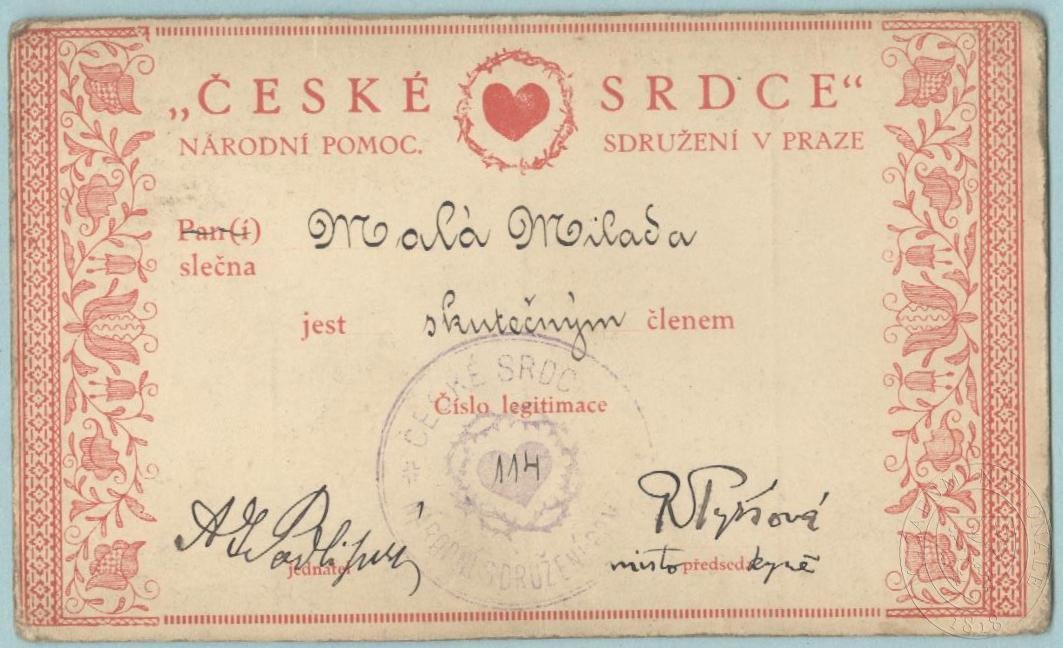 „ČESKÉ SRDCE“
NÁRODNÍ POMOC. SDRUŽENÍ V PRAZE
Pan(í)
slečna
Malá Milada
jest skutečným členem
Číslo legitimace
114
ČESKÉ SRDC
NÁRODNÍ SDRUŽENÍ
R Tyršová
jednatel
místopředsedkyně
1818